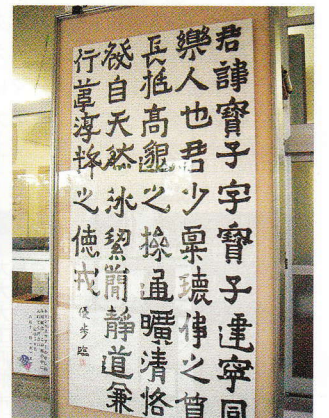 君諱寶子字寶子建寧同
樂人也君少稟瓌偉之質
長挺高邈之操通曠清恪
發自天然冰絜簡靜道兼
行葦淳粹之德戎
優步臨